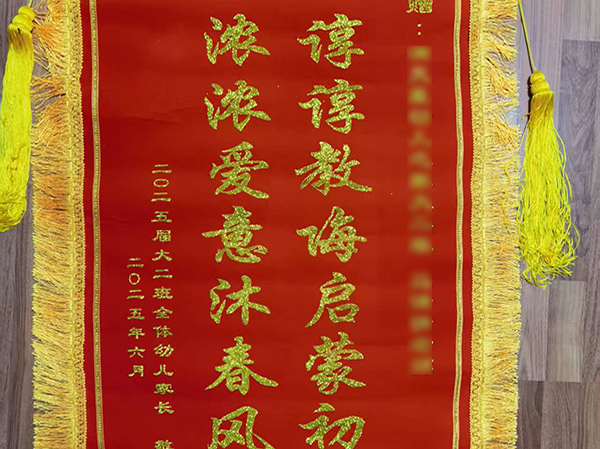 赠：
谆谆教诲启蒙初
浓浓爱意沐春风
二〇二五届大二班全体幼儿家长
二〇二五年六月